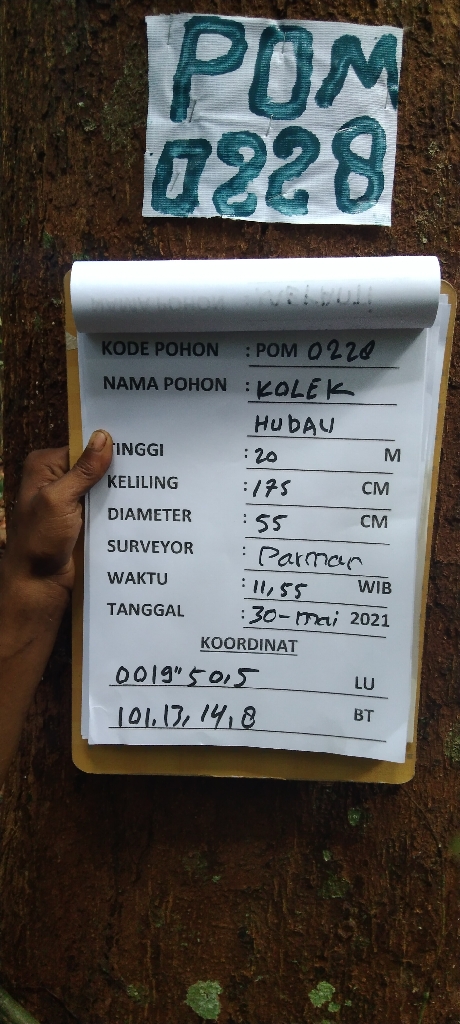 POM
0228
KODE POHON : POM 0228
NAMA POHON : KOLEK
HUDAU
TINGGI : 20 M
KELILING : 175 CM
DIAMETER : 55 CM
SURVEYOR : Parman
WAKTU : 11,55 WIB
TANGGAL : 30-mai 2021
KOORDINAT
0019"50,5 LU
101,13,14,8 BT